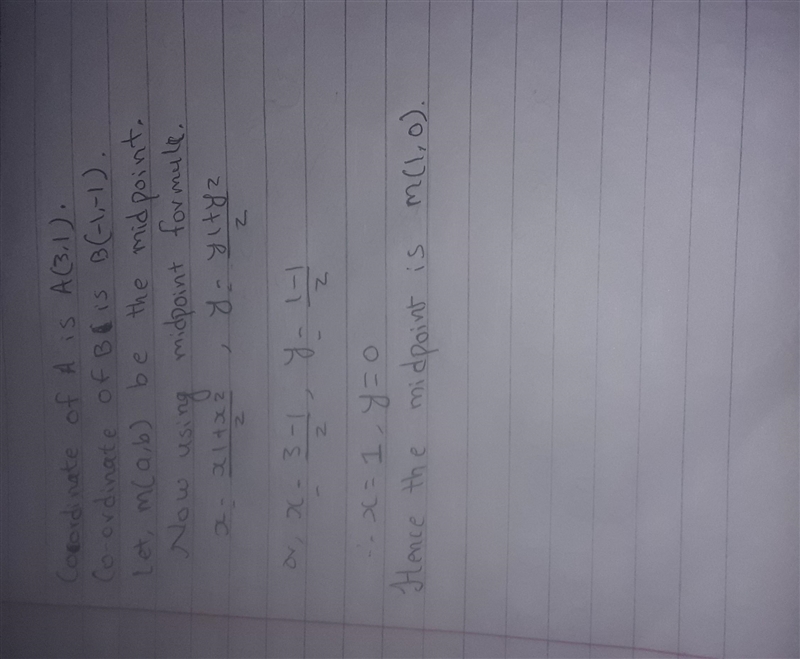 Coordinate of A is A(3,1).
Co-ordinate of B is B(-1,-1).
Let, m(a,b) be the midpoint.
Now using midpoint formula.
x = x1+x2/2, y = y1+y2/2
or, x = 3-1/2, y = 1-1/2
∴ x = 1, y = 0
Hence the midpoint is m(1,0).